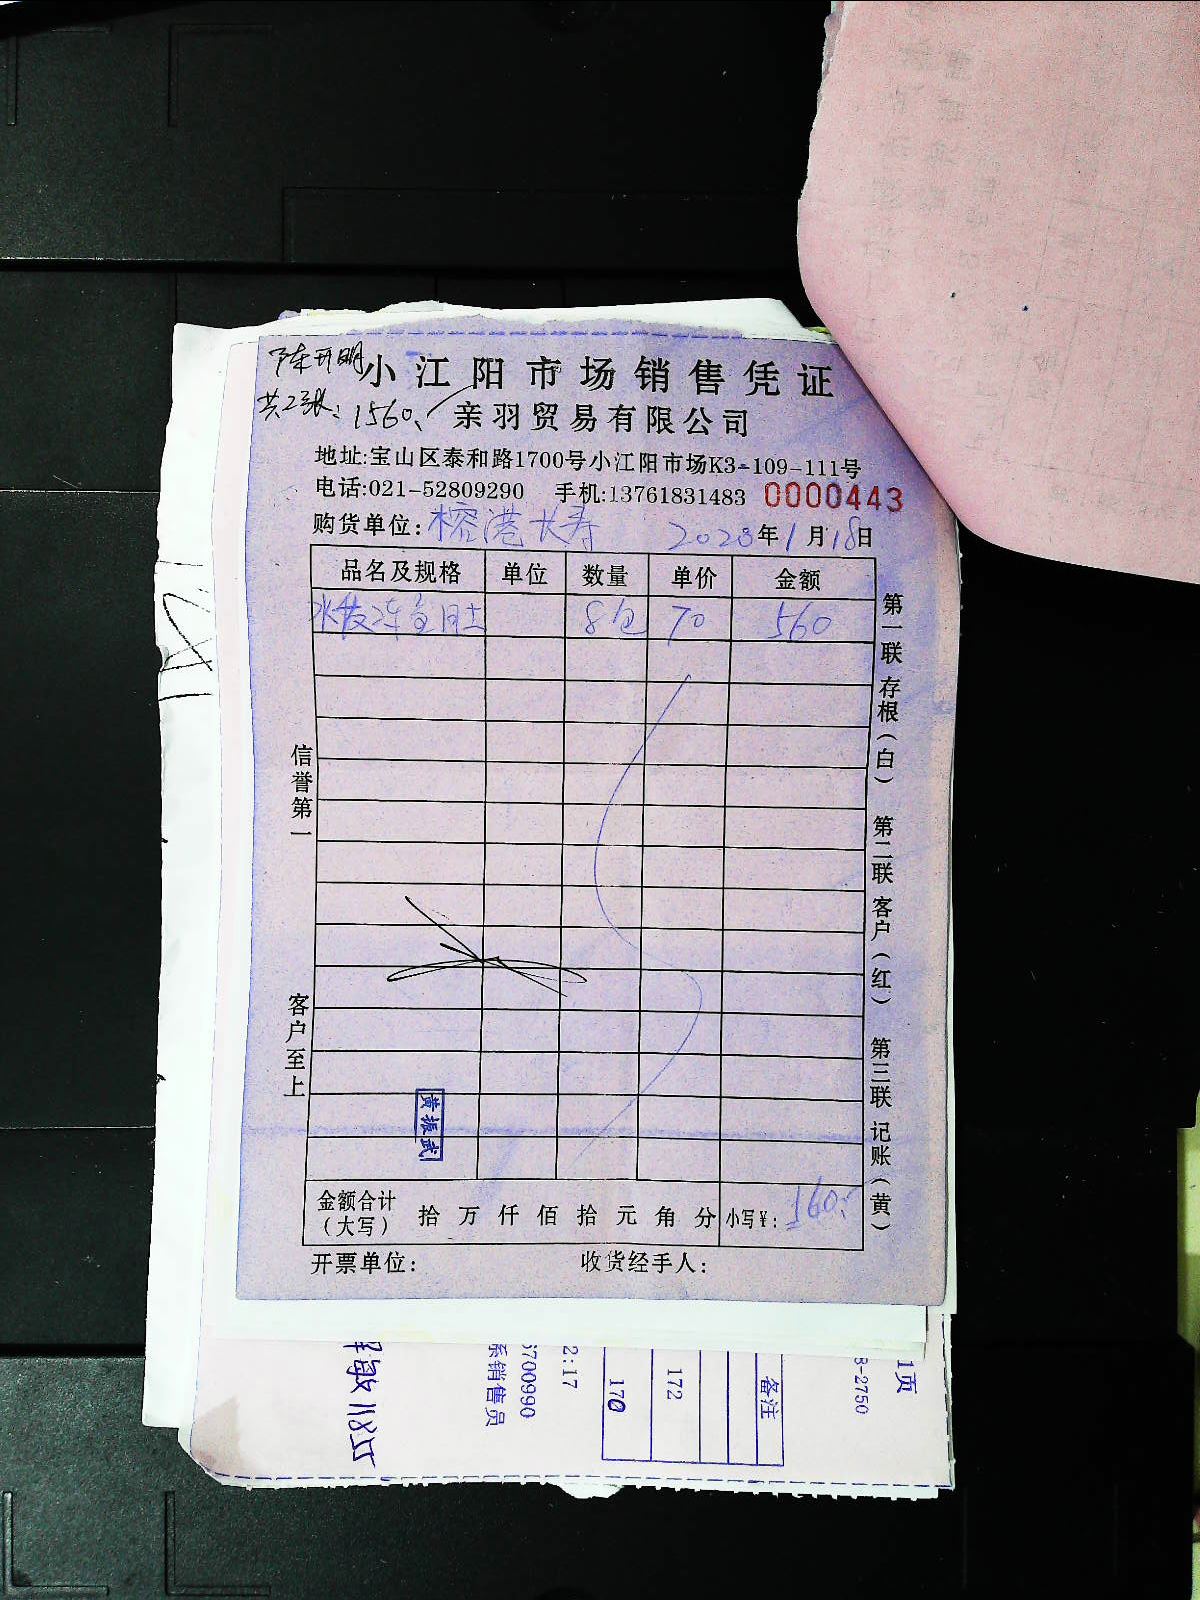 陈开明
小江阳市场销售凭证
共2张: 1560.
亲羽贸易有限公司
地址:宝山区泰和路1700号小江阳市场K3-109-111号
电话:021-52809290 手机:13761831483 0000443
购货单位: 榕港长寿 2023年1月18日
品名及规格 单位 数量 单价 金额
水发冻鱼肚 8包 70 560
第一联 存根（白） 第二联 客户（红） 第三联 记账（黄）
信誉第一
客户至上
黄振武
金额合计（大写） 拾 万 仟 佰 拾 元 角 分 小写¥: 160.
开票单位: 收货经手人:
1页
8-2750
备注
172
170
2:17
5700990
系销售员